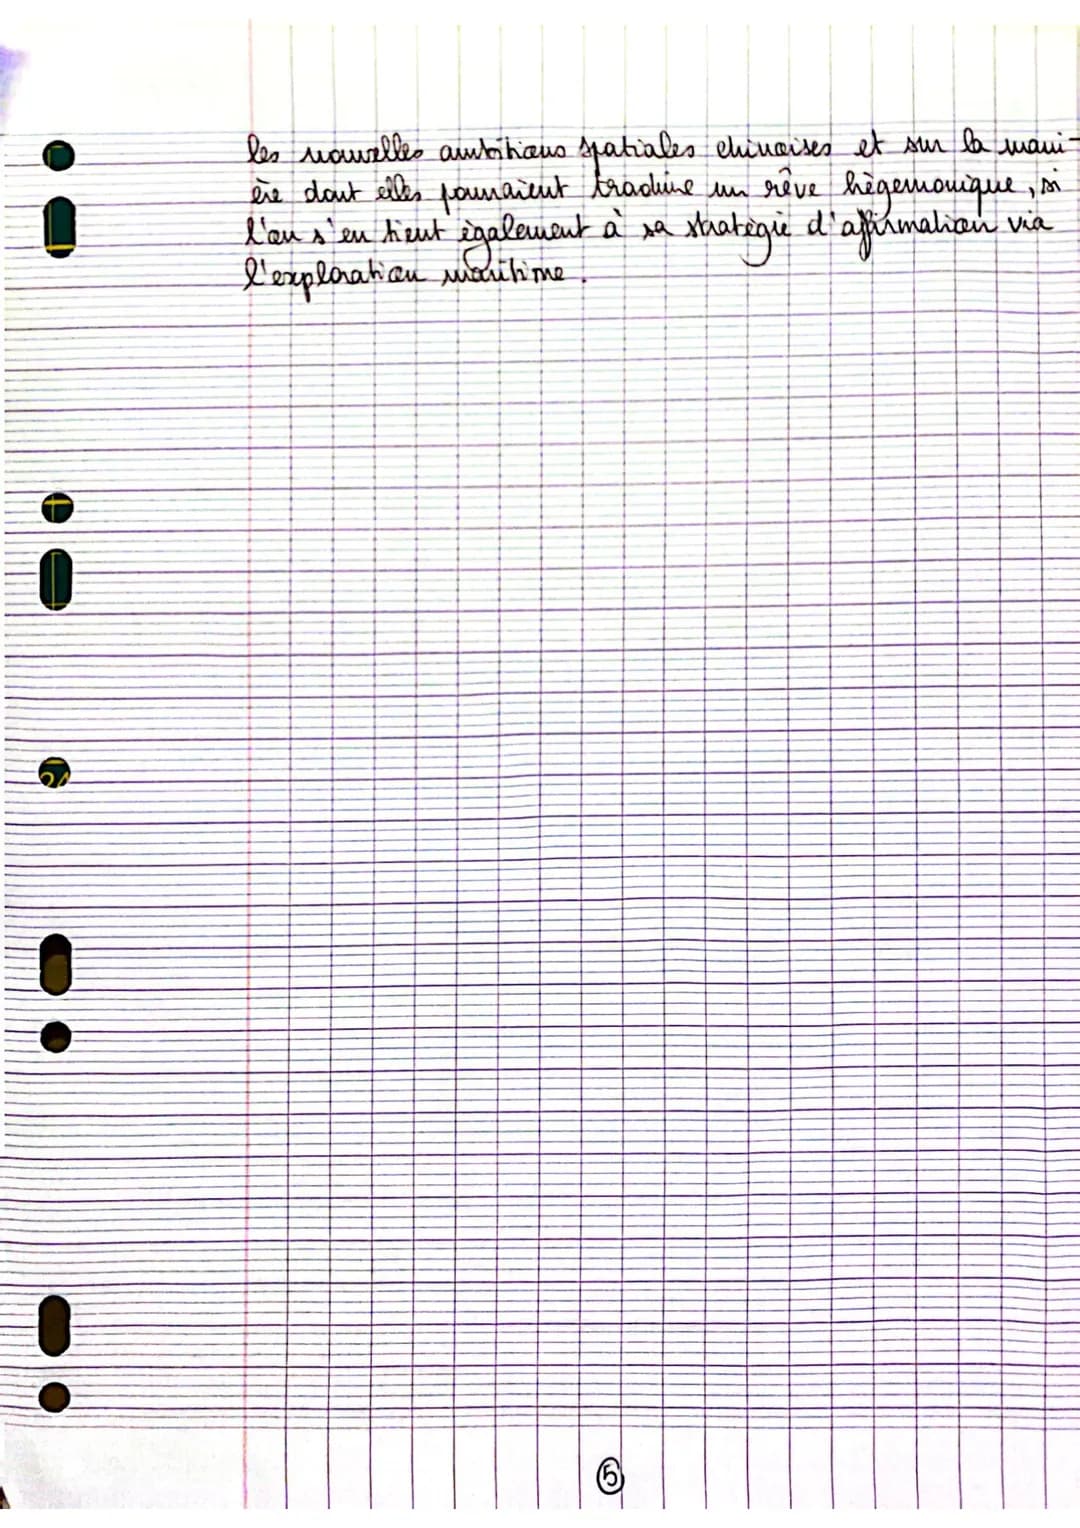 les nouvelles ambitions spatiales chinoises et sur la mani-
ère dont elles pourraient traduire un rêve hégemonique, si
l'on s'en tient également à sa stratégie d'affirmation via
l'exploration maritime.
24
5